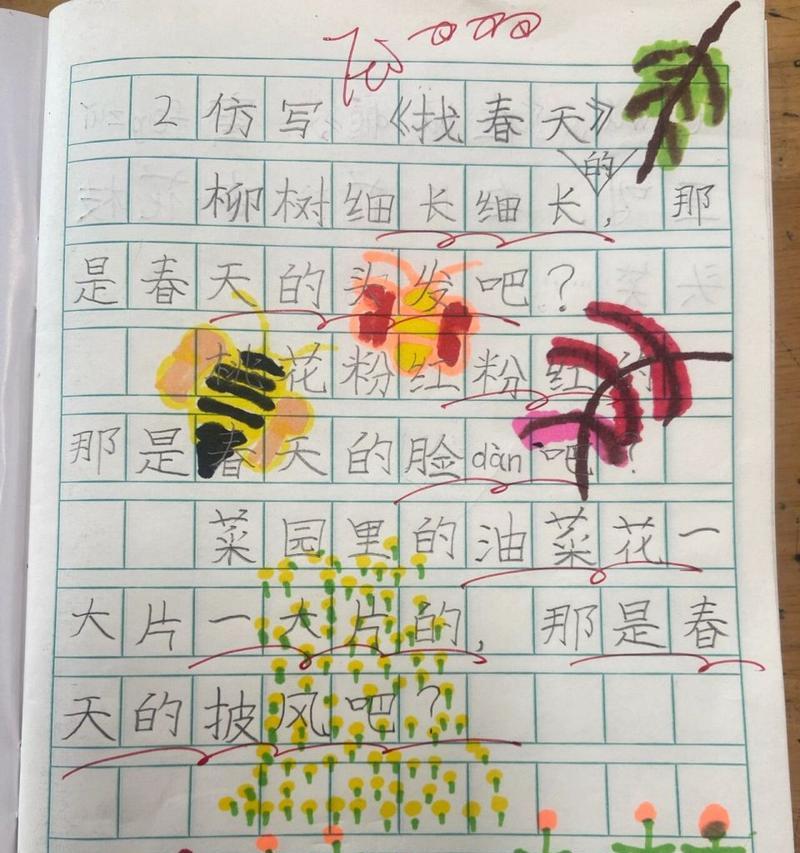 2仿写《找春天》
柳树细长细长的,那
是春天的头发吧?
桃花粉红粉红的
那是春天的脸dàn吧?
菜园里的油菜花一
大片一大片的,那是春
天的披风吧?